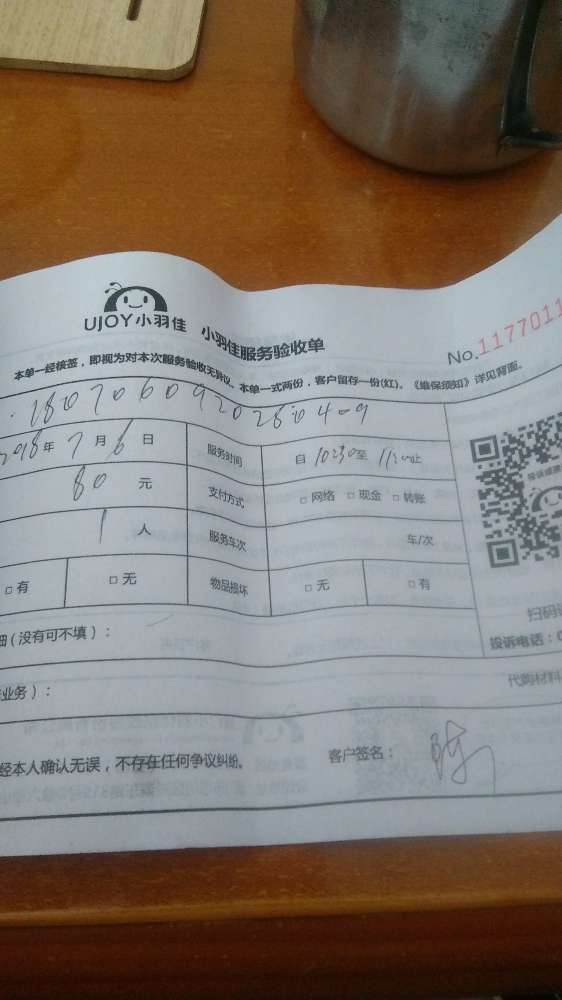 UJOY小羽佳 小羽佳服务验收单
No.1177011
本单一经核签，即视为对本次服务验收无异议。本单一式两份，客户留存一份(红)。《维保须知》详见背面。
年 7月6日 服务时间 自 10:30至 11:00止
80 元 支付方式 □ 网络 □ 现金 □ 转账
1 人 服务车次 车/次
□ 有 □ 无 物品损坏 □ 无 □ 有
(没有可不填)：
扫码
投诉电话：0
业务)：
代购材料
经本人确认无误，不存在任何争议纠纷。 客户签名：